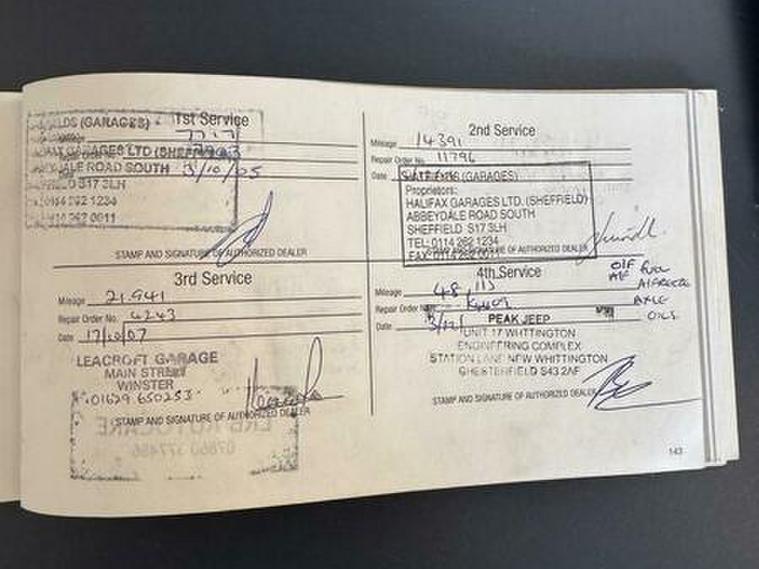 1st Service
(GARAGES)
7717
GARAGES LTD (SHEFFIELD)
ROAD SOUTH 3/10/05
S17 3LH
262 1234
262 0011
STAMP AND SIGNATURE OF AUTHORIZED DEALER
2nd Service
Mileage 14391
Repair Order No. 11796
Date
(GARAGES)
Proprietors:
HALIFAX GARAGES LTD. (SHEFFIELD)
ABBEYDALE ROAD SOUTH
SHEFFIELD S17 3LH
TEL: 0114 262 1234
STAMP AND SIGNATURE OF AUTHORIZED DEALER
FAX: 0114 262 0011
3rd Service
Mileage 21.941
Repair Order No. 4243
Date 17/10/07
LEACROFT GARAGE
MAIN STREET
WINSTER
01629 650253
STAMP AND SIGNATURE OF AUTHORIZED DEALER
4th Service
Mileage 48 113
Repair Order
Date
O/F Fuel
A/F A/FREEZE
AXLE
OILS
PEAK JEEP
UNIT 17 WHITTINGTON
ENGINEERING COMPLEX
STATION LANE NEW WHITTINGTON
CHESTERFIELD S43 2AF
STAMP AND SIGNATURE OF AUTHORIZED DEALER
143